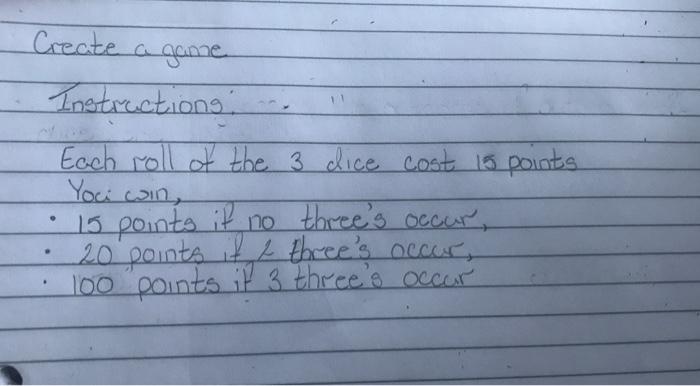 Create a game
Instructions:
Each roll of the 3 dice cost 15 points
You win,
• 15 points if no three's occur,
• 20 points if 2 three's occur,
• 100 points if 3 three's occur